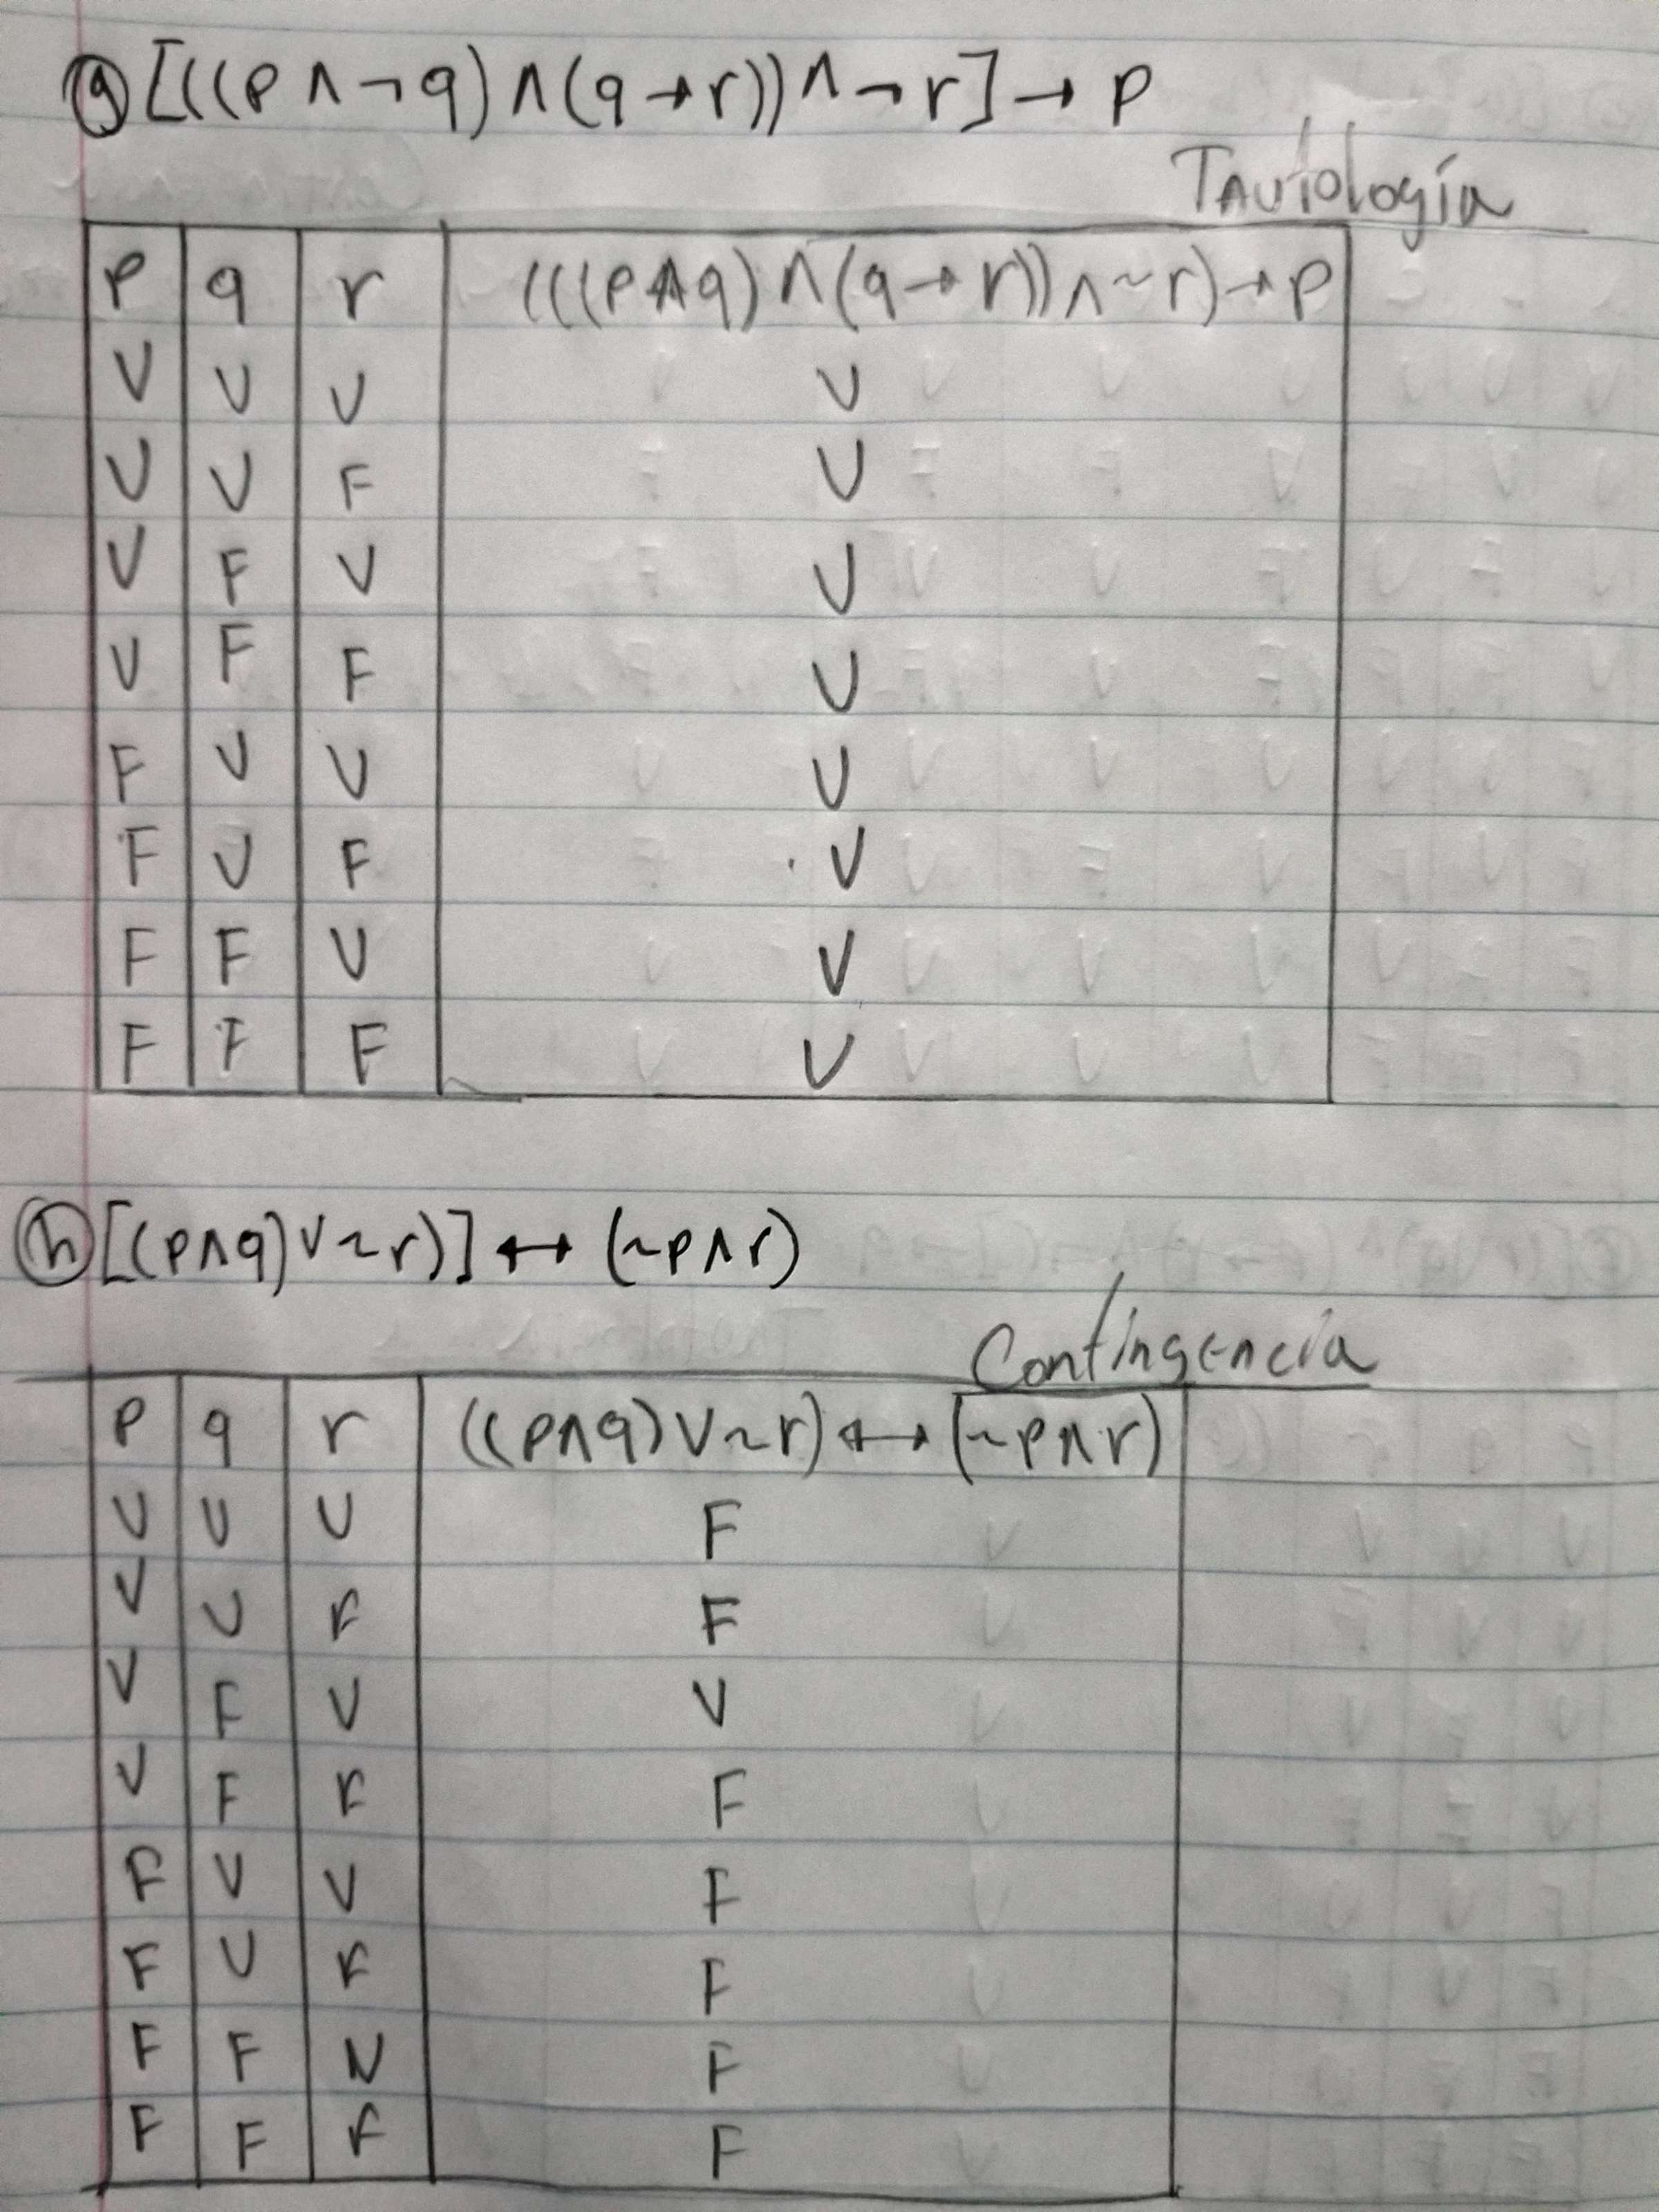 g [((p ∧ ¬ q) ∧ (q → r)) ∧ ¬ r] → p
Tautología
p q r (((p∧q) ∧ (q → r)) ∧ ~ r) → p
V V V V
V V F V
V F V V
V F F V
F V V V
F V F V
F F V V
F F F V
h [(p∧q) ∨ ~ r)] ↔ (~p∧r)
Contingencia
p q r ((p∧q) ∨ ~ r) ↔ (~p∧r)
V V V F
V V F F
V F V V
V F F F
F V V F
F V F F
F F V F
F F F F